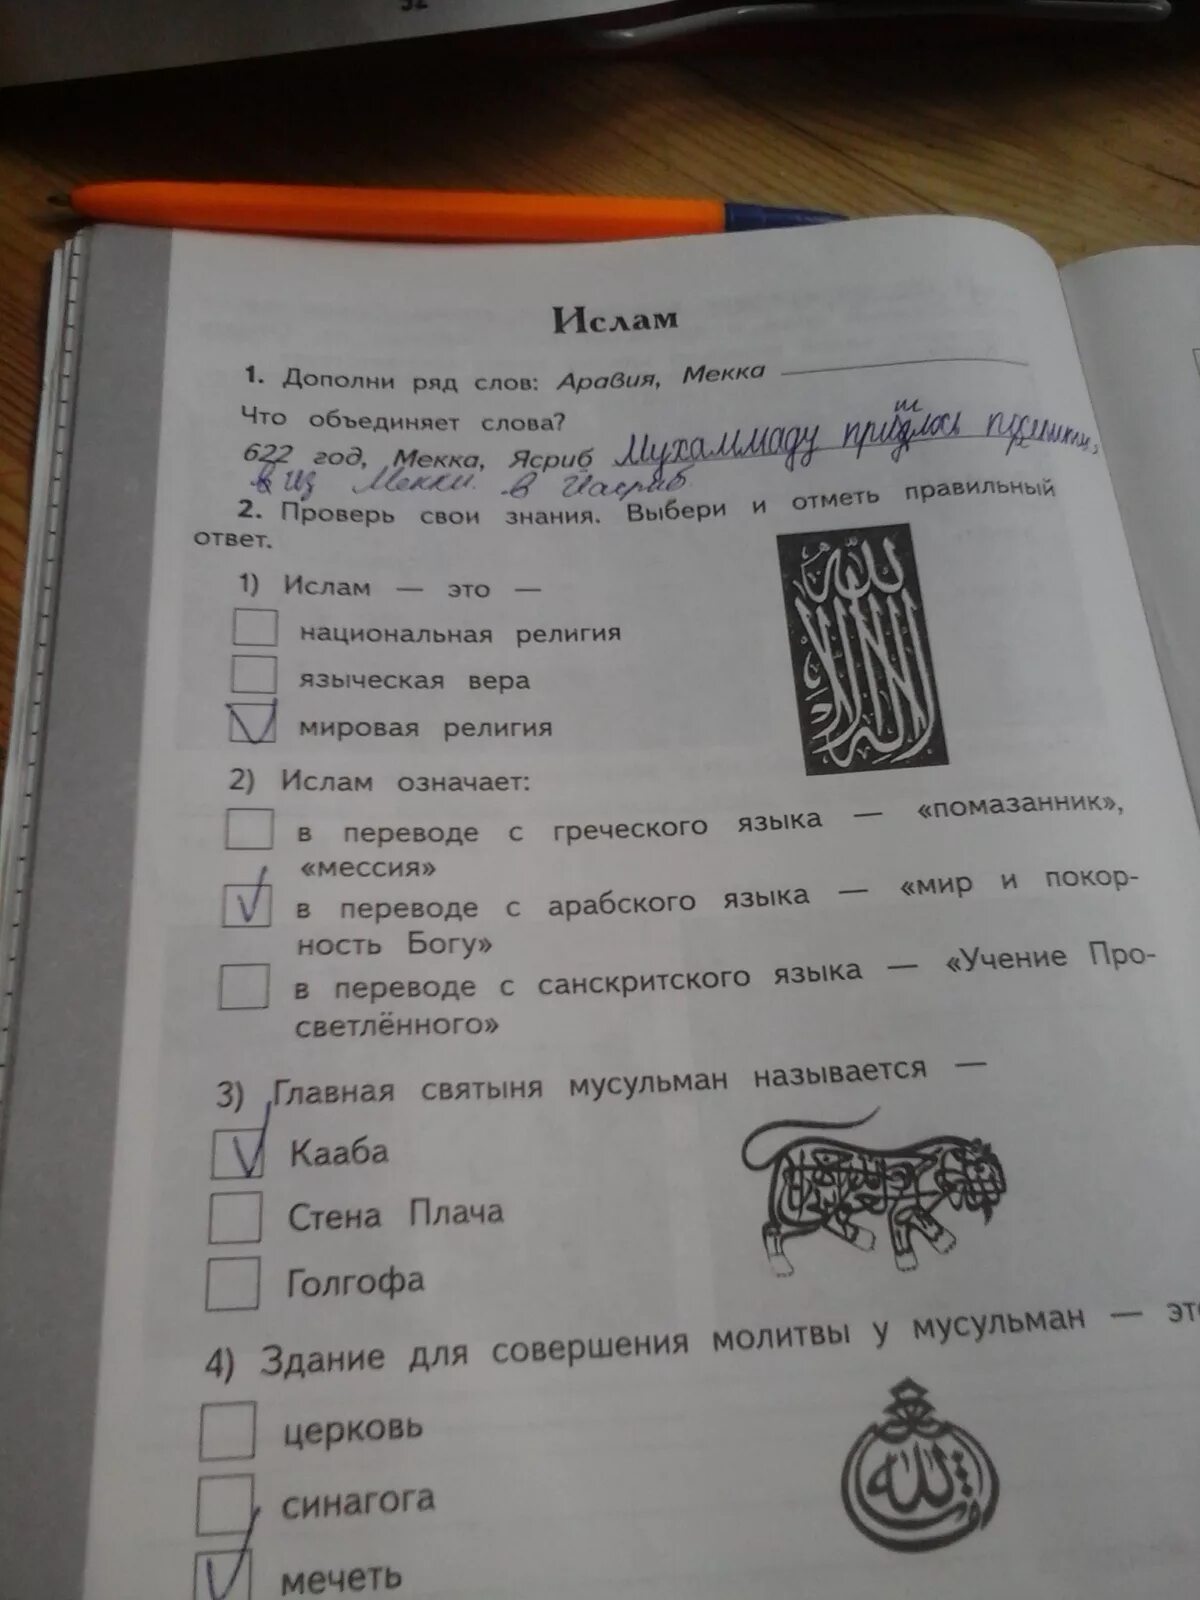 52
Ислам
1. Дополни ряд слов: Аравия, Мекка
Что объединяет слова?
622 год, Мекка, Ясриб Мухаммаду пришлось
из Мекки в Иасриб.
2. Проверь свои знания. Выбери и отметь правильный
ответ.
1) Ислам — это —
национальная религия
языческая вера
мировая религия
2) Ислам означает:
в переводе с греческого языка — «помазанник»,
«мессия»
в переводе с арабского языка — «мир и покор-
ность Богу»
в переводе с санскритского языка — «Учение Про-
светлённого»
3) Главная святыня мусульман называется —
Кааба
Стена Плача
Голгофа
4) Здание для совершения молитвы у мусульман — это
церковь
синагога
мечеть